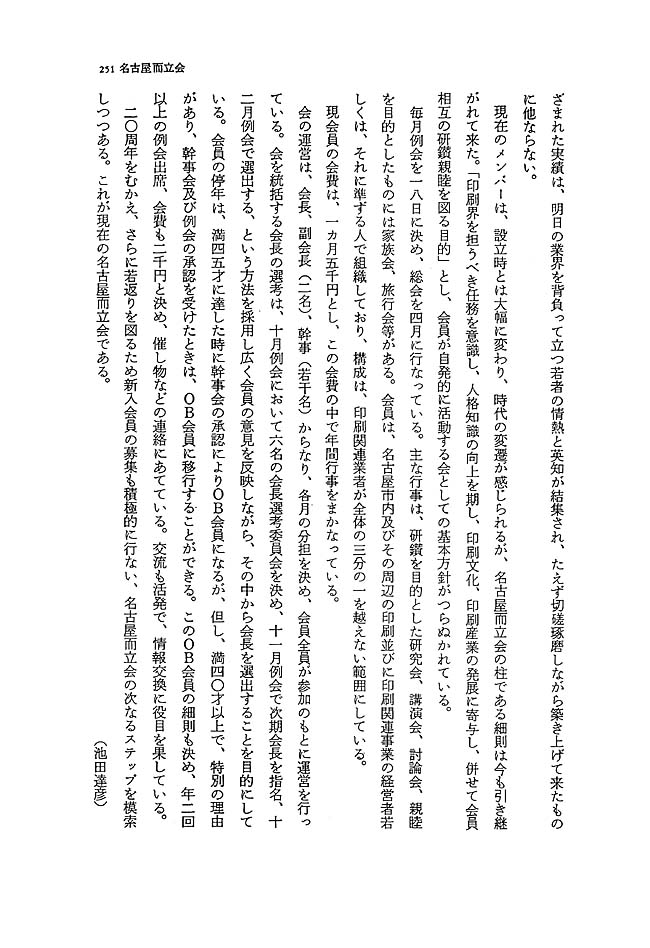 251 名古屋而立会
ざまれた実績は、明日の業界を背負って立つ若者の情熱と英知が結集され、たえず切磋琢磨しながら築き上げて来たもの
に他ならない。
現在のメンバーは、設立時とは大幅に変わり、時代の変遷が感じられるが、名古屋而立会の柱である細則は今も引き継
がれて来た。「印刷界を担うべき任務を意識し、人格知識の向上を期し、印刷文化、印刷産業の発展に寄与し、併せて会員
相互の研鑽親睦を図る目的」とし、会員が自発的に活動する会としての基本方針がつらぬかれている。
毎月例会を一八日に決め、総会を四月に行なっている。主な行事は、研鑽を目的とした研究会、講演会、討論会、親睦
を目的としたものには家族会、旅行会等がある。会員は、名古屋市内及びその周辺の印刷並びに印刷関連事業の経営者若
しくは、それに準ずる人で組織しており、構成は、印刷関連業者が全体の三分の一を越えない範囲にしている。
現会員の会費は、一カ月五千円とし、この会費の中で年間行事をまかなっている。
会の運営は、会長、副会長（二名）、幹事（若干名）からなり、各月の分担を決め、会員全員が参加のもとに運営を行っ
ている。会を統括する会長の選考は、十月例会において六名の会長選考委員会を決め、十一月例会で次期会長を指名、十
二月例会で選出する、という方法を採用し広く会員の意見を反映しながら、その中から会長を選出することを目的にして
いる。会員の停年は、満四五才に達した時に幹事会の承認によりＯＢ会員になるが、但し、満四〇才以上で、特別の理由
があり、幹事会及び例会の承認を受けたときは、ＯＢ会員に移行することができる。このＯＢ会員の細則も決め、年二回
以上の例会出席、会費も二千円と決め、催し物などの連絡にあてている。交流も活発で、情報交換に役目を果している。
二〇周年をむかえ、さらに若返りを図るため新入会員の募集も積極的に行ない、名古屋而立会の次なるステップを模索
しつつある。これが現在の名古屋而立会である。
（池田達彦）